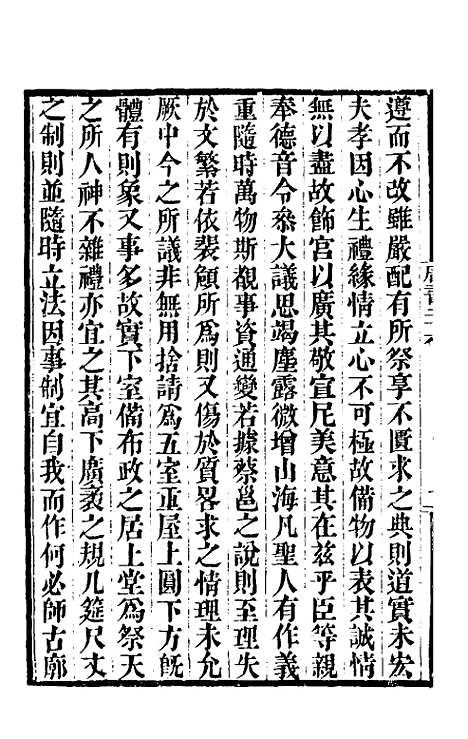 遵而不改雖嚴配有所祭享不匱求之典則道實未宏
夫孝因心生禮緣情立心不可極故備物以表其誠情
無以盡故飾宮以廣其敬宣尼美意其在茲乎臣等親
奉德音令叅大議思竭塵露微增山海凡聖人有作義
重隨時萬物斯覩事資通變若據蔡邕之說則至理失
於文繁若依裴頠所爲則又傷於質畧求之情理未允
厥中今之所議非無用捨請爲五室重屋上圓下方旣
體有則象又事多故實下室備布政之居上堂爲祭天
之所人神不雜禮亦宜之其高下廣袤之規几筵尺丈
之制則並隨時立法因事制宜自我而作何必師古廓